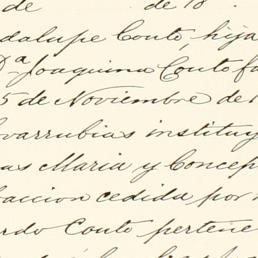 de de 18
dalupe Couto, hija
Dª Joaquina Couto fa
5 de Noviembre de 1
ovarrubias instituy
as Maria y Concep
accion cedida por
rdo Couto pertene